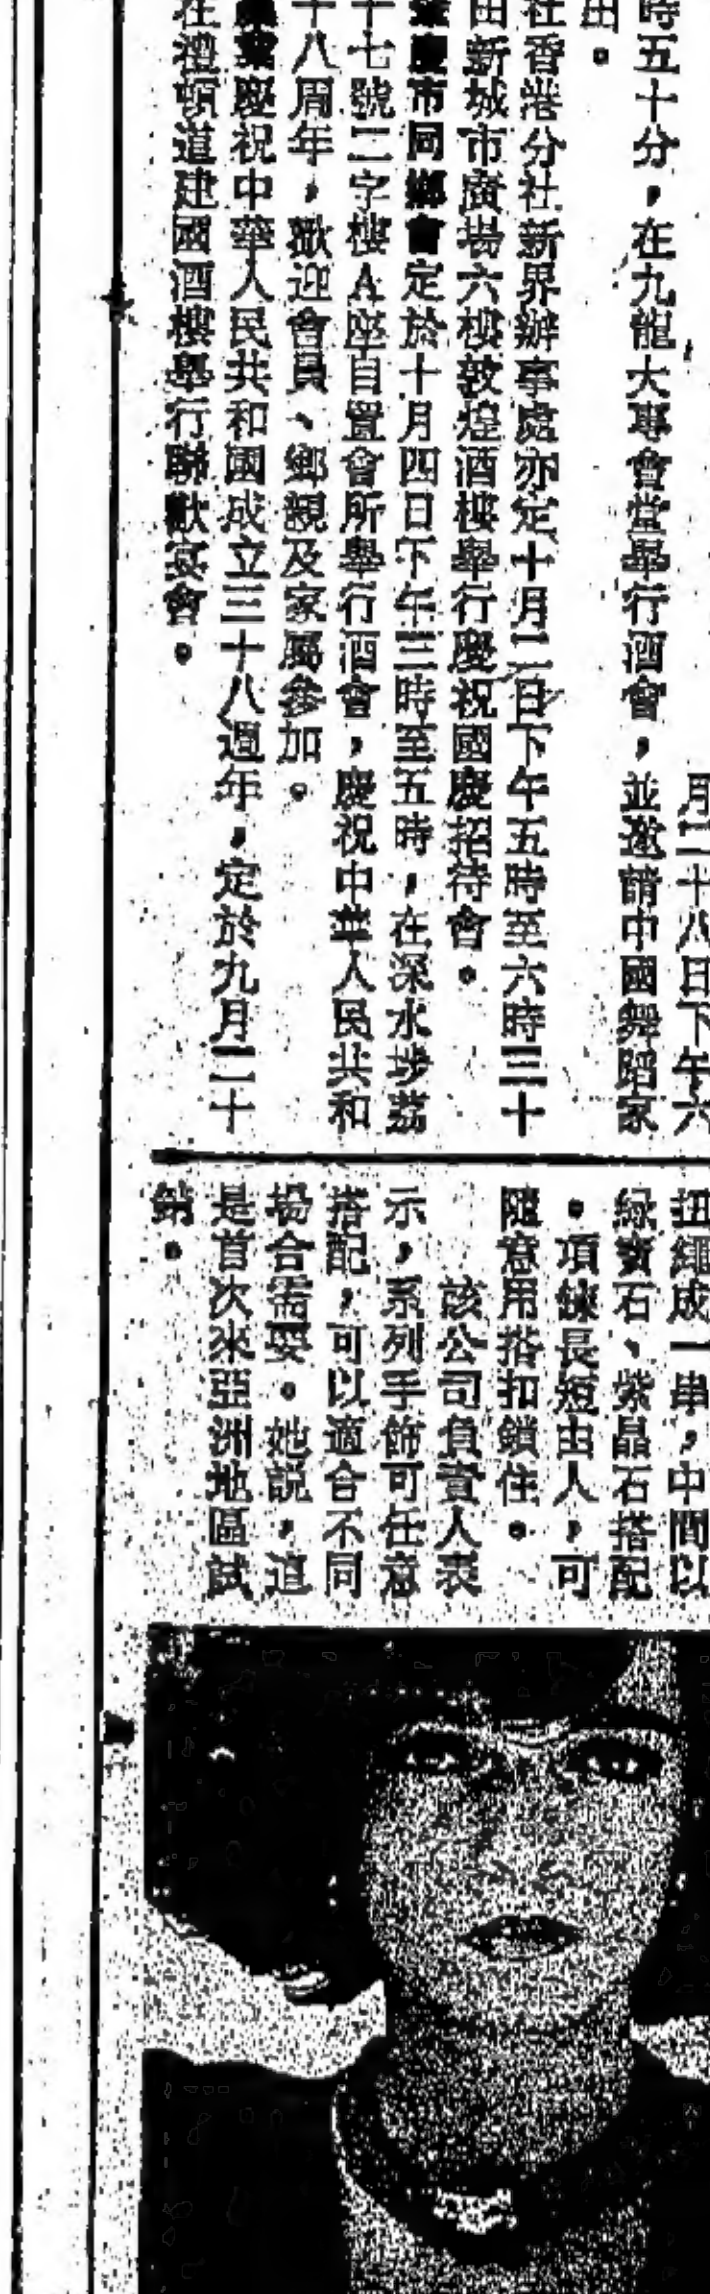 月二十八日下午六
時五十分，在九龍大專會堂舉行酒會，並邀請中國舞蹈家
出。
社香港分社新界辦事處亦定十月二日下午五時至六時三十
田新城市廣場六樓敦煌酒樓舉行慶祝國慶招待會。
慶市同鄉會定於十月四日下午三時至五時，在深水埗荔
十七號二字樓A座自置會所舉行酒會，慶祝中華人民共和
十八周年，歡迎會員、鄉親及家屬參加。
慶祝中華人民共和國成立三十八週年，定於九月二十
在禮頓道建國酒樓舉行聯歡宴會。
扭繩成一串，中間以
綠寶石、紫晶石搭配
。項鍊長短由人，可
隨意用搭扣鎖住。
該公司負責人表
示，系列手飾可任意
搭配，可以適合不同
場合需要。她說，這
是首次來亞洲地區試
銷。